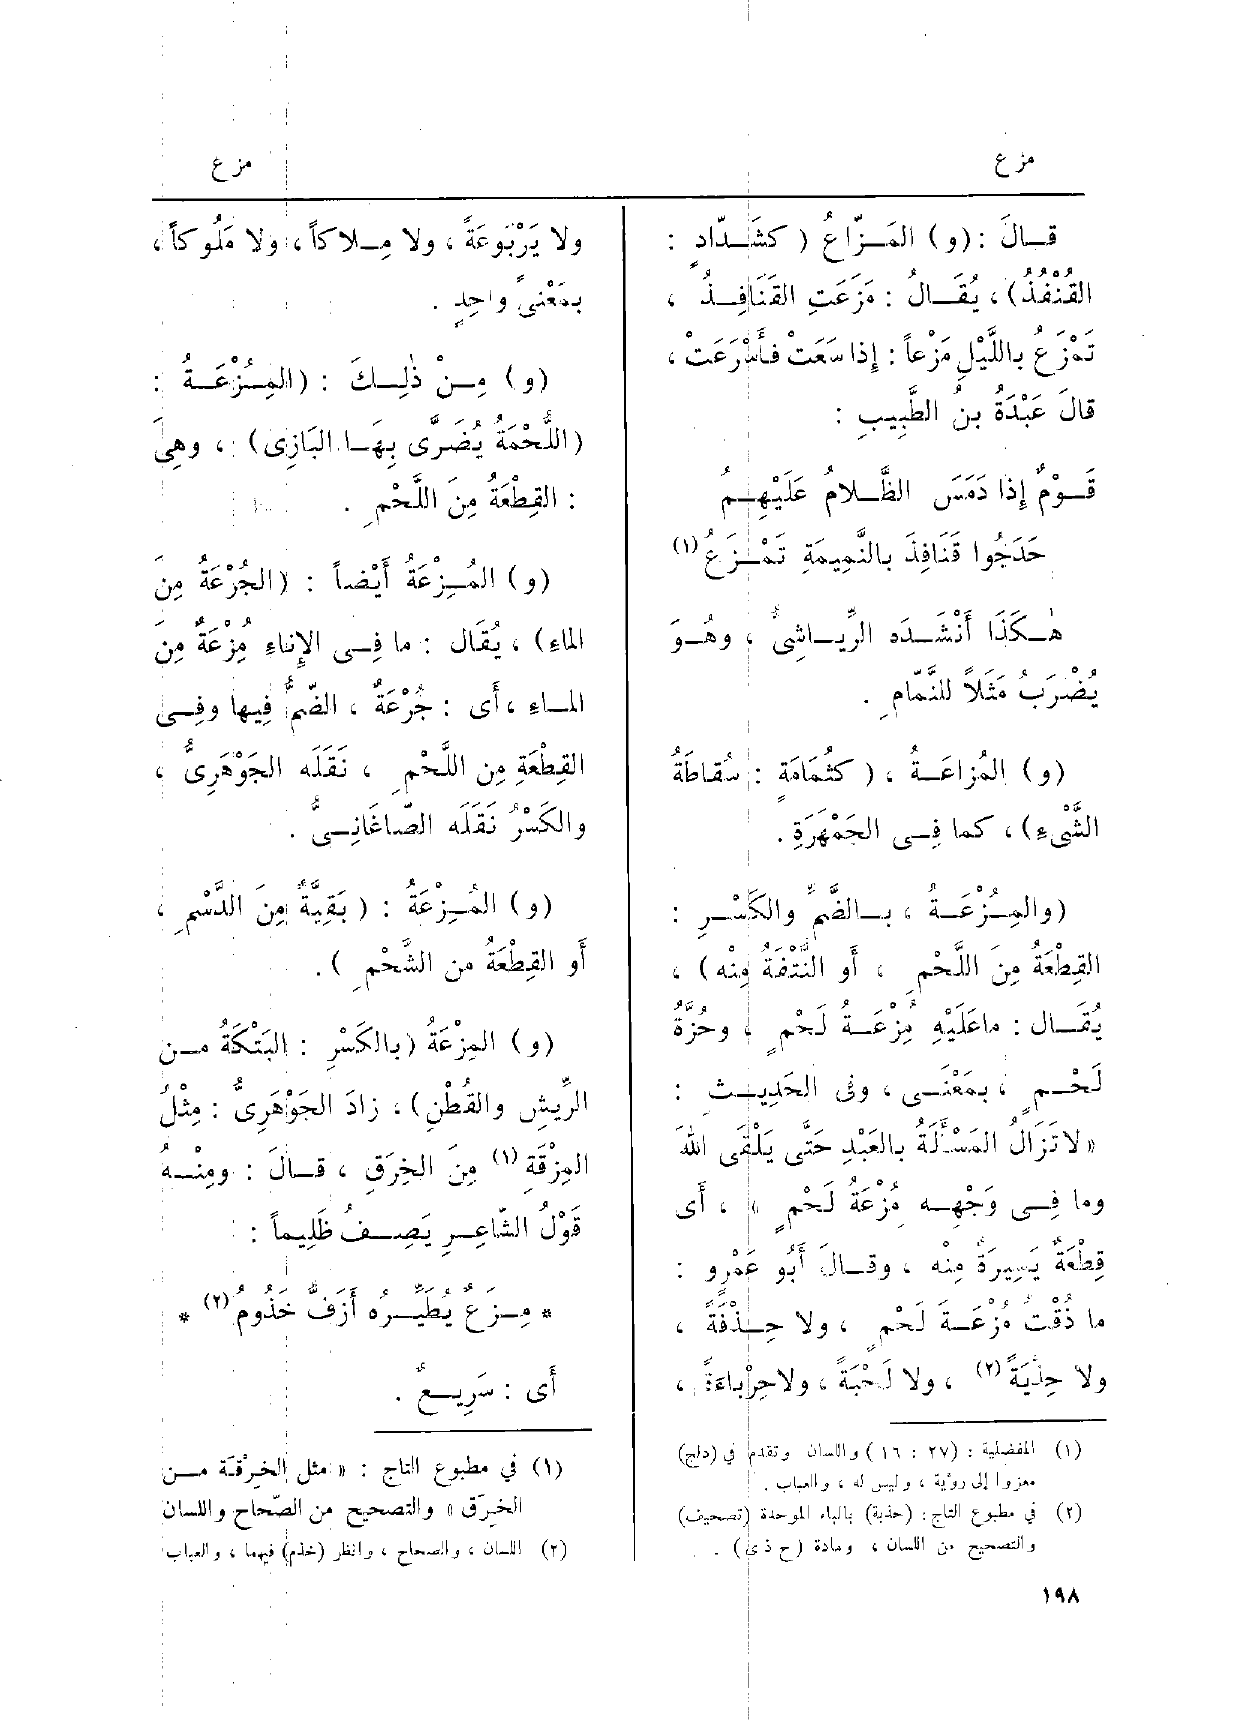 مزع
مزع
قـالَ : (و) المَـزّاعُ ( كشَـدّادٍ :
القُنْفُذُ) ، يُقَـالُ : مَزَعَتِ القَنَافِـذُ ،
تَمْزَعُ بِاللَّيْلِ مَزْعاً : إذا سَعَتْ فأَسْرَعَتْ ،
قالَ عَبْدَةُ بنُ الطَّبِيبِ :
قَـوْمٌ إذا دَمَسَ الظَّـلامُ عَلَيْهِـمُ
حَدَجُوا قَنَافِذَ بالنَّمِيمَةِ تَمْـزَعُ (١)
هٰـكَذَا أَنْشَـدَه الرِّيـاشِىُّ ، وهُـوَ
يُضْرَبُ مَثَلاً للنَّمّامِ .
(و) المُزاعَـةُ ، ( كثُمَامَةٍ : سُقاطَةُ
الشَّىْءِ) ، كما فِـى الجَمْهَرَةِ .
(والمِـزْعَـةُ ، بـالضَّمِّ والكَسْـرِ :
القِطْعَةُ مِنَ اللَّحْمِ ، أو النُّتْفَةُ مِنْه) ،
يُقَـال : ماعَلَيْهِ مُزْعَـةُ لَحْمٍ ، وحُزَّةُ
لَحْـمٍ ، بمَعْنًـى ، وفى الحَدِيـثِ :
« لاتَزَالُ المَسْأَلَةُ بالعَبْدِ حَتَّى يَلْقَى اللهَ
وما فِـى وَجْهِـه مُزْعَةُ لَحْمٍ » ، أى
قِطْعَةٌ يَسِيرَةٌ مِنْه ، وقـالَ أَبُو عَمْرٍو :
ما ذُقْتُ مُزْعَـةَ لَحْمٍ ، ولا حِـذْفَةً ،
ولا حِذْيَةً (٢) ، ولا لَحْبَةً ، ولاحِرْباءَةً ،
(١) المفضلية : (٢٧ : ١٦) واللسان وتقدم في (دلج)
معزوا إلى رؤبة ، وليس له ، والعباب .
(٢) في مطبوع التاج : (حذبة) بالباء الموحدة (تصحيف)
والتصحيح من اللسان ، ومادة (ح ذ ى) .
ولا يَرْبُوعَةً ، ولا مِـلاكاً ، ولا مَلُوكاً ،
بمَعْنىً واحِدٍ .
(و) مِـنْ ذٰلِـكَ : (المِـزْعَـةُ :
(اللَّحْمَةُ يُضَرَّى بِهَـا البَازِى) ، وهِىَ
: القِطْعَةُ مِنَ اللَّحْمِ .
(و) المُـزْعَةُ أَيْضاً : (الجُرْعَةُ مِنَ
الماءِ) ، يُقَال : ما فِـى الإِناءِ مُزْعَةٌ مِنَ
المـاءِ ، أى : جُرْعَةٌ ، الضَّمُّ فِيها وفِـى
القِطْعَةِ مِن اللَّحْمِ ، نَقَلَه الجَوْهَرِىُّ ،
والكَسْرُ نَقَلَه الصّاغَانِـىُّ .
(و) المُـزْعَةُ : ( بَقِيَّةٌ مِنَ الدَّسْمِ ،
أو القِطْعَةُ من الشَّحْمِ ) .
(و) المِزْعَةُ (بالكَسْرِ : البَتْكَةُ مـن
الرِّيشِ والقُطْنِ) ، زادَ الجَوْهَرِىُّ : مِثْلُ
المِزْقَةِ (١) مِنَ الخِرَقِ ، قـالَ : ومِنْـهُ
قَوْلُ الشّاعِـرِ يَصِـفُ ظَلِيماً :
* مِـزَعٌ يُطَيِّـرُه أَزَفُّ خَذُومُ (٢) *
أى : سَرِيـعٌ .
(١) في مطبوع التاج : « مثل الخِرْقـة مـن
الخِرَق » والتصحيح من الصّحاح واللسان
(٢) اللسان ، والصحاح ، وانظر (خذم) فيهما ، والعباب
١٩٨